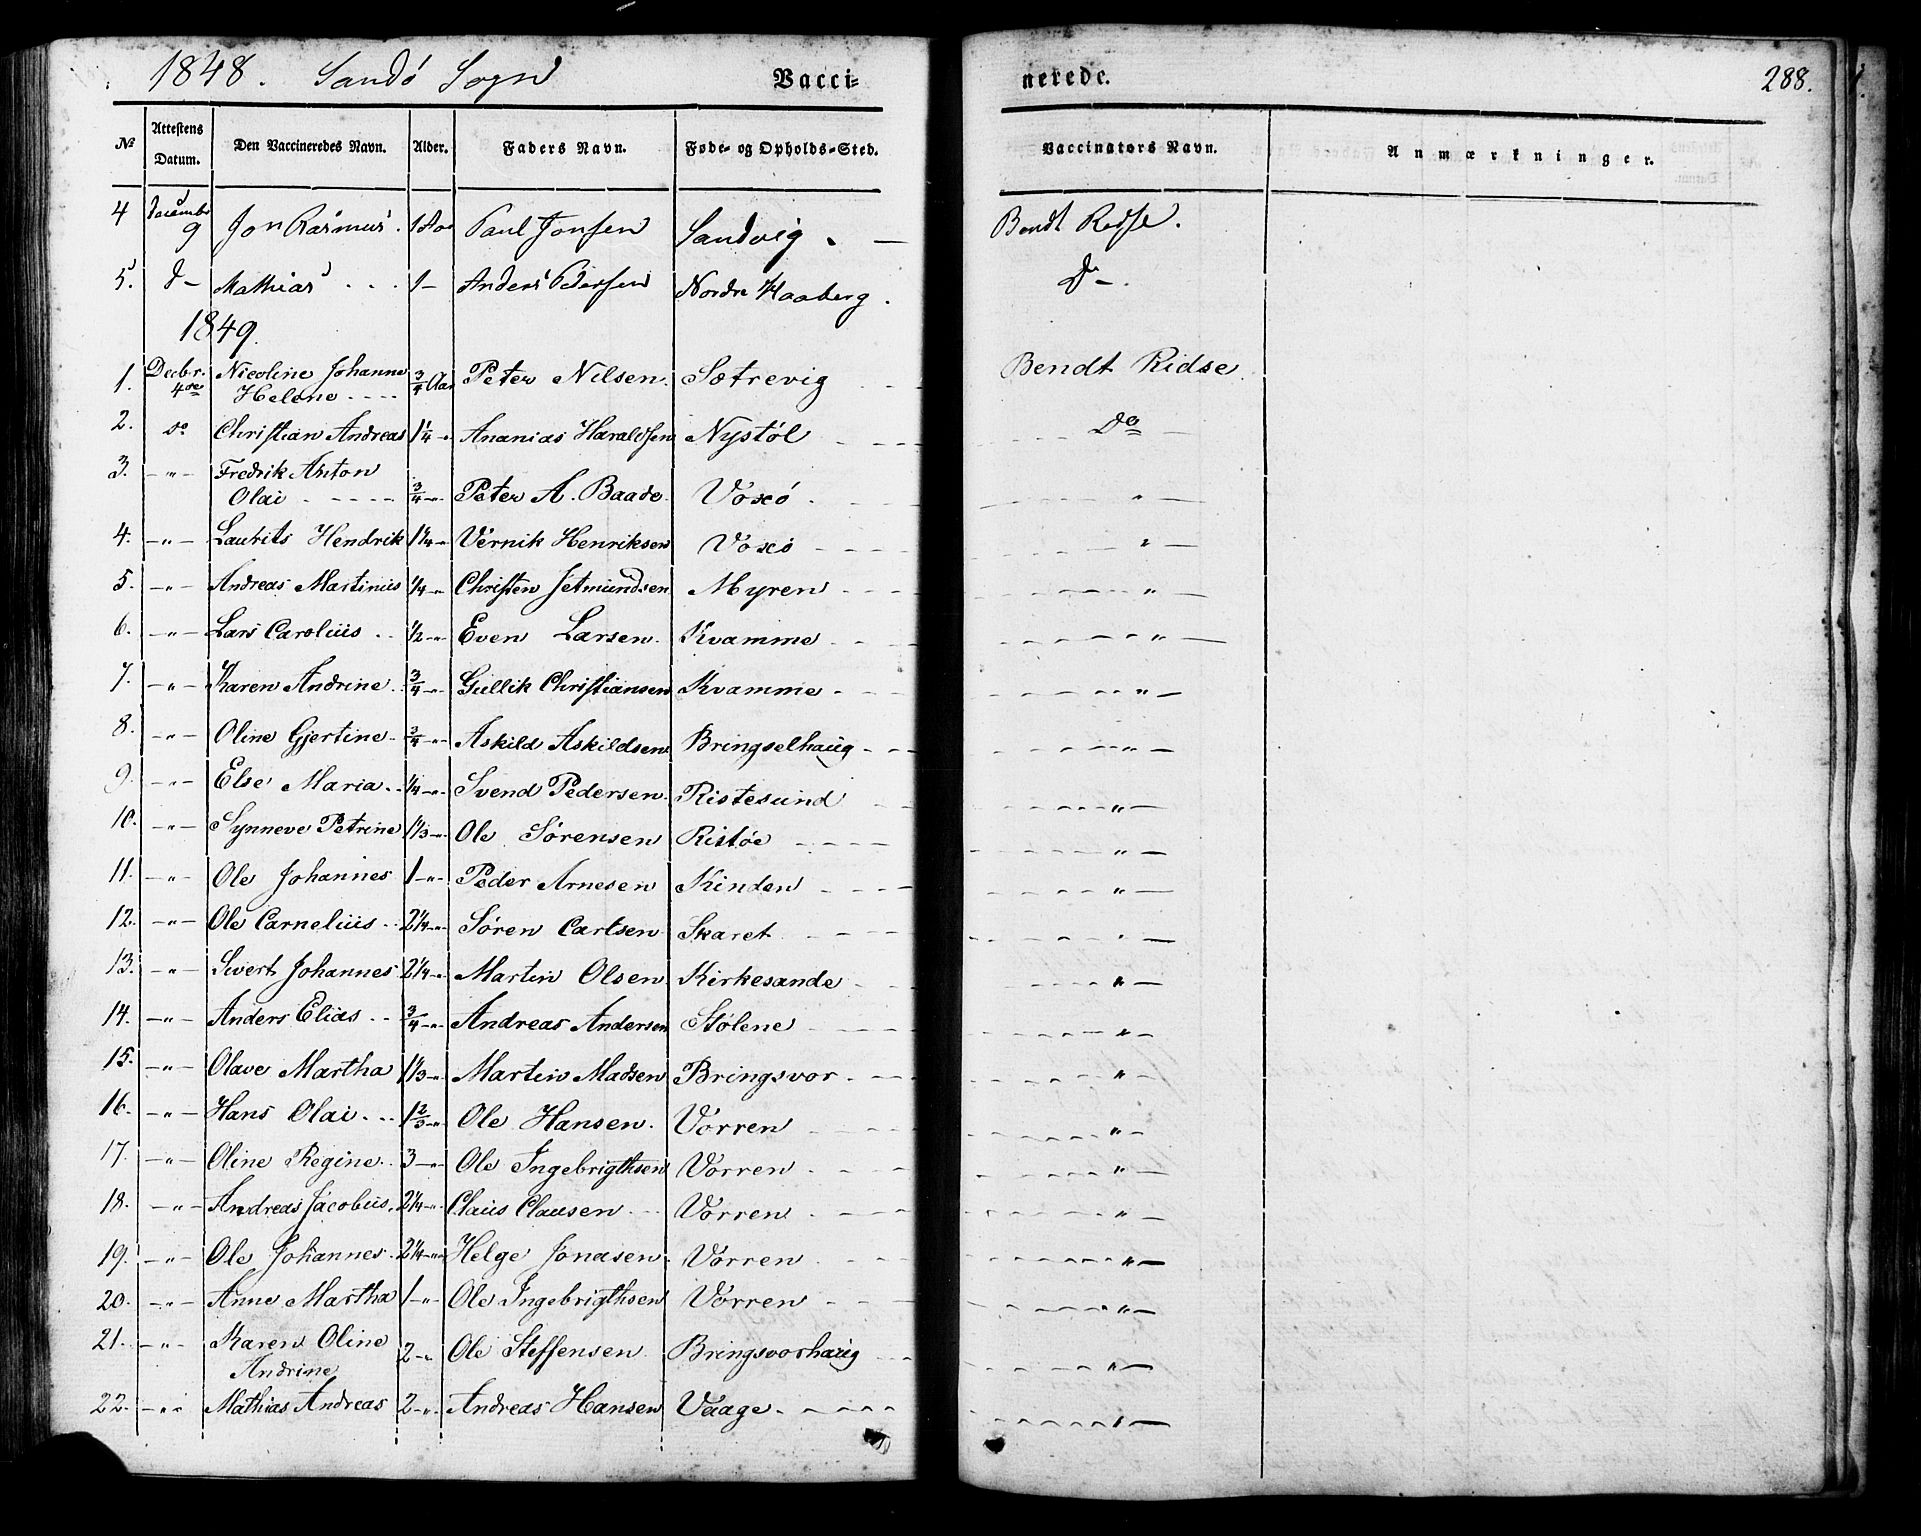 1848. Sandö Sogn Vacci= nerede. 288.
№ Attestens Datum. Den Vaccineredes Navn. Alder. Faders Navn. Føde- og Opholds-Sted. Vaccinators Navn. Anmærkninger.
4 Decembr 9 Jon Rasmus . 1 Aar Paul Jonsen Sandvig . — Bendt Ridse.
5. d— Mathias . . . 1— Anders Pedersen Nordre Haaberg . Do—.
1849.
1. Decbr. 4de Nicoline Johanne Helene . --- 3/4 Aar Peter Nilsen. Sætrevig Bendt Ridse
2. do Christian Andreas 1 1/4 -"- Ananias Haraldsen Nystöl Do —
3. —"— Fredrik Anton Olai - - - - 3/4 -"- Peter A. Baade. Voxö . "—
4. —"— Laurits Hendrik 1 1/4 -"- Vernik Henriksen Voxö "—
5. —"— Andreas Martinus 1/4 -"- Christen Jetmundsen Myren "—
6. —"— Lars Carolus . . 1/2 -"- Even Larsen. Kvamme "—
7. —"— Karen Andrine . 3/4 -"- Gullik Christiansen Kvamme "—
8. —"— Oline Gjertine. 3/4 -"- Askild Askildsen Bringselhaug "—
9. —"— Else Maria . . 1/4 -"- Svend Pedersen. Ristesund "—
10. —"— Synneve Petrine 1 1/3 -"- Ole Sörensen Ristöe "—
11. —"— Ole Johannes 1 -"- Peder Arnesen Kinden "—
12. —"— Ole Carnelius . . 2 1/4 -"- Sören Carlsen Skaret "—
13. —"— Sivert Johannes 2 1/4 -"- Martin Olsen Kirkesande "—
14. —"— Anders Elias . . 3/4 -"- Andreas Andersen Stölene "—
15. —"— Olave Martha 1 1/3 -"- Martin Madsen Bringsvor . "—
16. —"— Hans Olai . . . 1 2/3 -"- Ole Hansen. Vorren "—
17. —"— Oline Regine . 3 -"- Ole Ingebrigthsen Vorren "—
18. —"— Andreas Jacobus. 2 1/4 -"- Claus Clausen Vorren "—
19. —"— Ole Johannes . 2 1/4 -"- Helge Jonasen Vorren "—
20. —"— Anne Martha 1 -"- Ole Ingebrigthsen Vorren "—
21. —"— Karen Oline Andrine 2 -"- Ole Steffensen Bringsvorhaug "—
22. —"— Mathias Andreas 2 -"- Andreas Hansen Vaage . "—